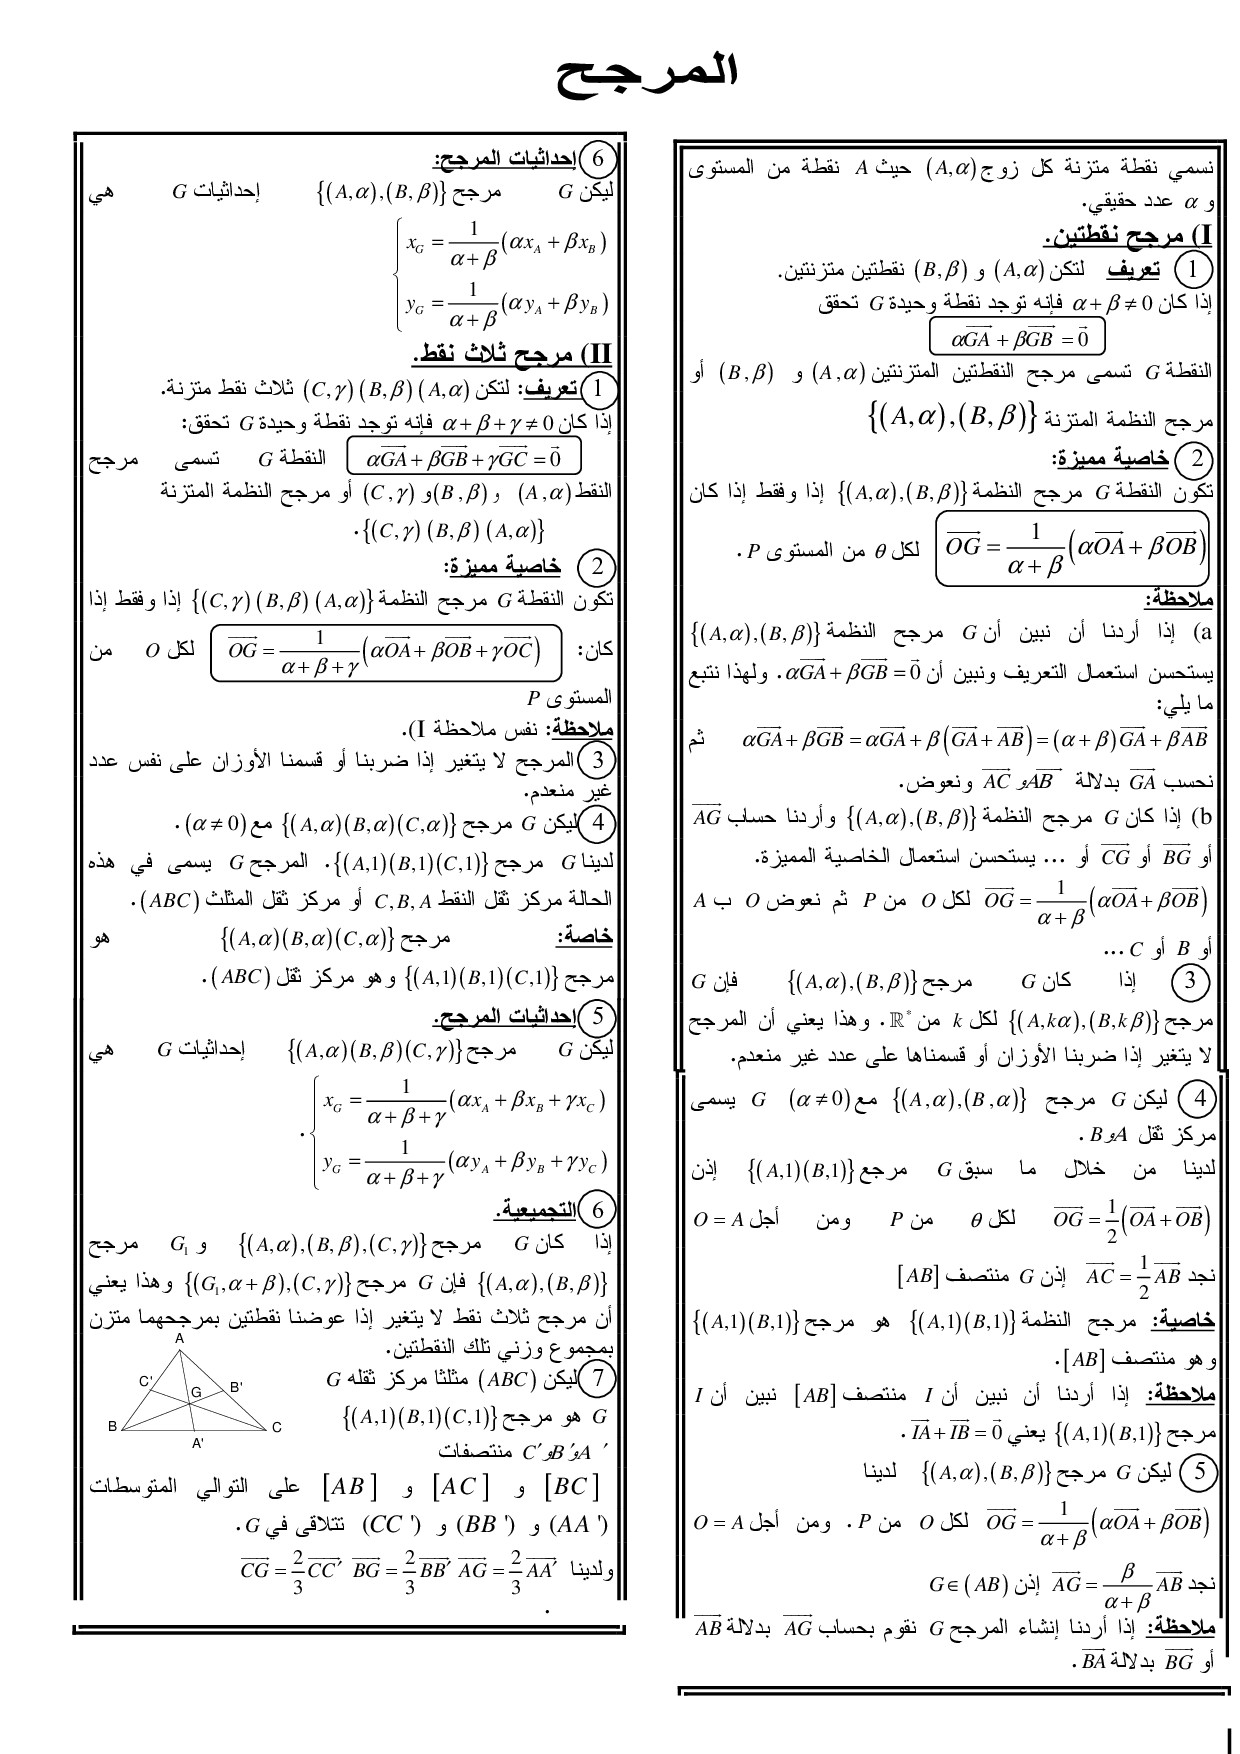 المرجح
نسمي نقطة متزنة كل زوج (A,α) حيث A نقطة من المستوى
و α عدد حقيقي.
I) مرجح نقطتين.
1 تعريف لتكن (A,α) و (B,β) نقطتين متزنتين.
إذا كان α+β≠0 فإنه توجد نقطة وحيدة G تحقق
αGA⃗ + βGB⃗ = 0⃗
النقطة G تسمى مرجح النقطتين المتزنتين (A,α) و (B,β) أو
مرجح النظمة المتزنة {(A,α),(B,β)}
2 خاصية مميزة:
تكون النقطة G مرجح النظمة {(A,α),(B,β)} إذا وفقط إذا كان
OG⃗ = 1/(α+β) (αOA⃗ + βOB⃗) لكل θ من المستوى P.
ملاحظة:
a) إذا أردنا أن نبين أن G مرجح النظمة {(A,α),(B,β)}
يستحسن استعمال التعريف ونبين أن αGA⃗+βGB⃗=0⃗. ولهذا نتبع
ما يلي:
αGA⃗+βGB⃗=αGA⃗+β(GA⃗+AB⃗)=(α+β)GA⃗+βAB⃗ ثم
نحسب GA⃗ بدلالة AB⃗ و AC⃗ ونعوض.
b) إذا كان G مرجح النظمة {(A,α),(B,β)} وأردنا حساب AG⃗
أو BG⃗ أو CG⃗ أو ... يستحسن استعمال الخاصية المميزة.
OG⃗ = 1/(α+β) (αOA⃗+βOB⃗) لكل O من P ثم نعوض O ب A
أو B أو C ...
3 إذا كان G مرجح {(A,α),(B,β)} فإن G
مرجح {(A,kα),(B,kβ)} لكل k من ℝ*. وهذا يعني أن المرجح
لا يتغير إذا ضربنا الأوزان أو قسمناها على عدد غير منعدم.
4 ليكن G مرجح {(A,α),(B,α)} مع (α≠0) G يسمى
مركز ثقل A و B.
لدينا من خلال ما سبق G مرجع {(A,1)(B,1)} إذن
OG⃗ = 1/2 (OA⃗+OB⃗) لكل θ من P ومن أجل O = A
نجد AC⃗ = 1/2 AB⃗ إذن G منتصف [AB]
خاصية: مرجح النظمة {(A,1)(B,1)} هو مرجح {(A,1)(B,1)}
وهو منتصف [AB].
ملاحظة: إذا أردنا أن نبين أن I منتصف [AB] نبين أن I
مرجح {(A,1)(B,1)} يعني IA⃗+IB⃗=0⃗.
5 ليكن G مرجح {(A,α),(B,β)} لدينا
OG⃗ = 1/(α+β) (αOA⃗+βOB⃗) لكل O من P. ومن أجل O = A
نجد AG⃗ = β/(α+β) AB⃗ إذن G∈(AB)
ملاحظة: إذا أردنا إنشاء المرجح G نقوم بحساب AG⃗ بدلالة AB⃗
أو BG⃗ بدلالة BA⃗.
6 إحداثيات المرجح:
ليكن G مرجح {(A,α),(B,β)} إحداثيات G هي
x_G = 1/(α+β) (αx_A + βx_B)
y_G = 1/(α+β) (αy_A + βy_B)
II) مرجح ثلاث نقط.
1 تعريف: لتكن (A,α) (B,β) (C,γ) ثلاث نقط متزنة.
إذا كان α+β+γ≠0 فإنه توجد نقطة وحيدة G تحقق:
αGA⃗+βGB⃗+γGC⃗=0⃗ النقطة G تسمى مرجح
النقط (A,α) و (B,β) و (C,γ) أو مرجح النظمة المتزنة
{(A,α) (B,β) (C,γ)}.
2 خاصية مميزة:
تكون النقطة G مرجح النظمة {(A,α) (B,β) (C,γ)} إذا وفقط إذا
كان: OG⃗ = 1/(α+β+γ) (αOA⃗+βOB⃗+γOC⃗) لكل O من
المستوى P
ملاحظة: نفس ملاحظة I).
3 المرجح لا يتغير إذا ضربنا أو قسمنا الأوزان على نفس عدد
غير منعدم.
4 ليكن G مرجح {(A,α)(B,α)(C,α)} مع (α≠0).
لدينا G مرجح {(A,1)(B,1)(C,1)}. المرجح G يسمى في هذه
الحالة مركز ثقل النقط C,B,A أو مركز ثقل المثلث (ABC).
خاصة: مرجح {(A,α)(B,α)(C,α)} هو
مرجح {(A,1)(B,1)(C,1)} وهو مركز ثقل (ABC).
5 إحداثيات المرجح.
ليكن G مرجح {(A,α)(B,β)(C,γ)} إحداثيات G هي
x_G = 1/(α+β+γ) (αx_A+βx_B+γx_C)
y_G = 1/(α+β+γ) (αy_A+βy_B+γy_C) .
6 التجميعية.
إذا كان G مرجح {(A,α),(B,β),(C,γ)} و G₁ مرجح
{(A,α),(B,β)} فإن G مرجح {(G₁,α+β),(C,γ)} وهذا يعني
أن مرجح ثلاث نقط لا يتغير إذا عوضنا نقطتين بمرجحهما متزن
بمجموع وزني تلك النقطتين.
7 ليكن (ABC) مثلثا مركز ثقله G
G هو مرجح {(A,1)(B,1)(C,1)}
A' و B' و C' منتصفات
[BC] و [AC] و [AB] على التوالي المتوسطات
(AA') و (BB') و (CC') تتلاقى في G.
ولدينا AG⃗ = 2/3 AA'⃗ BG⃗ = 2/3 BB'⃗ CG⃗ = 2/3 CC'⃗
.
A
C'
B'
G
B
C
A'